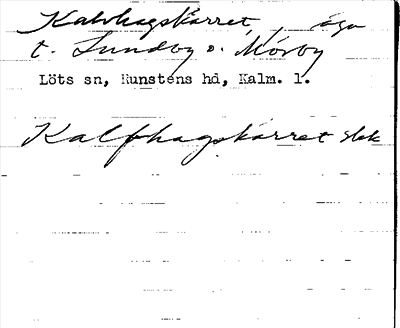 Kalvhagskärret, äga
t. Lundby o. Mörby
Löts sn, Runstens hd, Kalm. l.
Kalfhagskärret